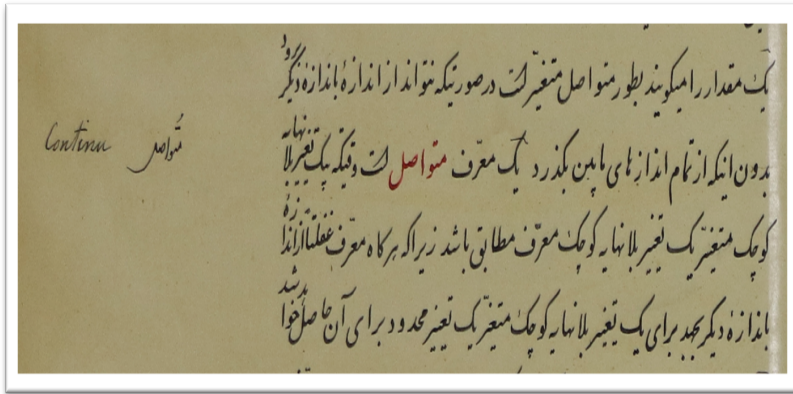 یک مقدار را میگویند بطور متواصل متغیّر است در صورتیکه نتواند از اندازهٔ باندازهٔ دیگر رود
بدون اینکه از تمام اندازهای مابین بگذرد یک معرّف متواصل است وقتیکه بیک تغییر بلا نهایه
کوچک متغیّر یک تغییر بلا نهایه کوچک معرّف مطابق باشد زیرا که هر گاه معرّف غفلتاً از اندازهٔ
باندازهٔ دیگر بجهد برای یک تغییر بلا نهایه کوچک متغیّر یک تغییر محدود برای آن حاصل خواهد شد
متواصل Continu